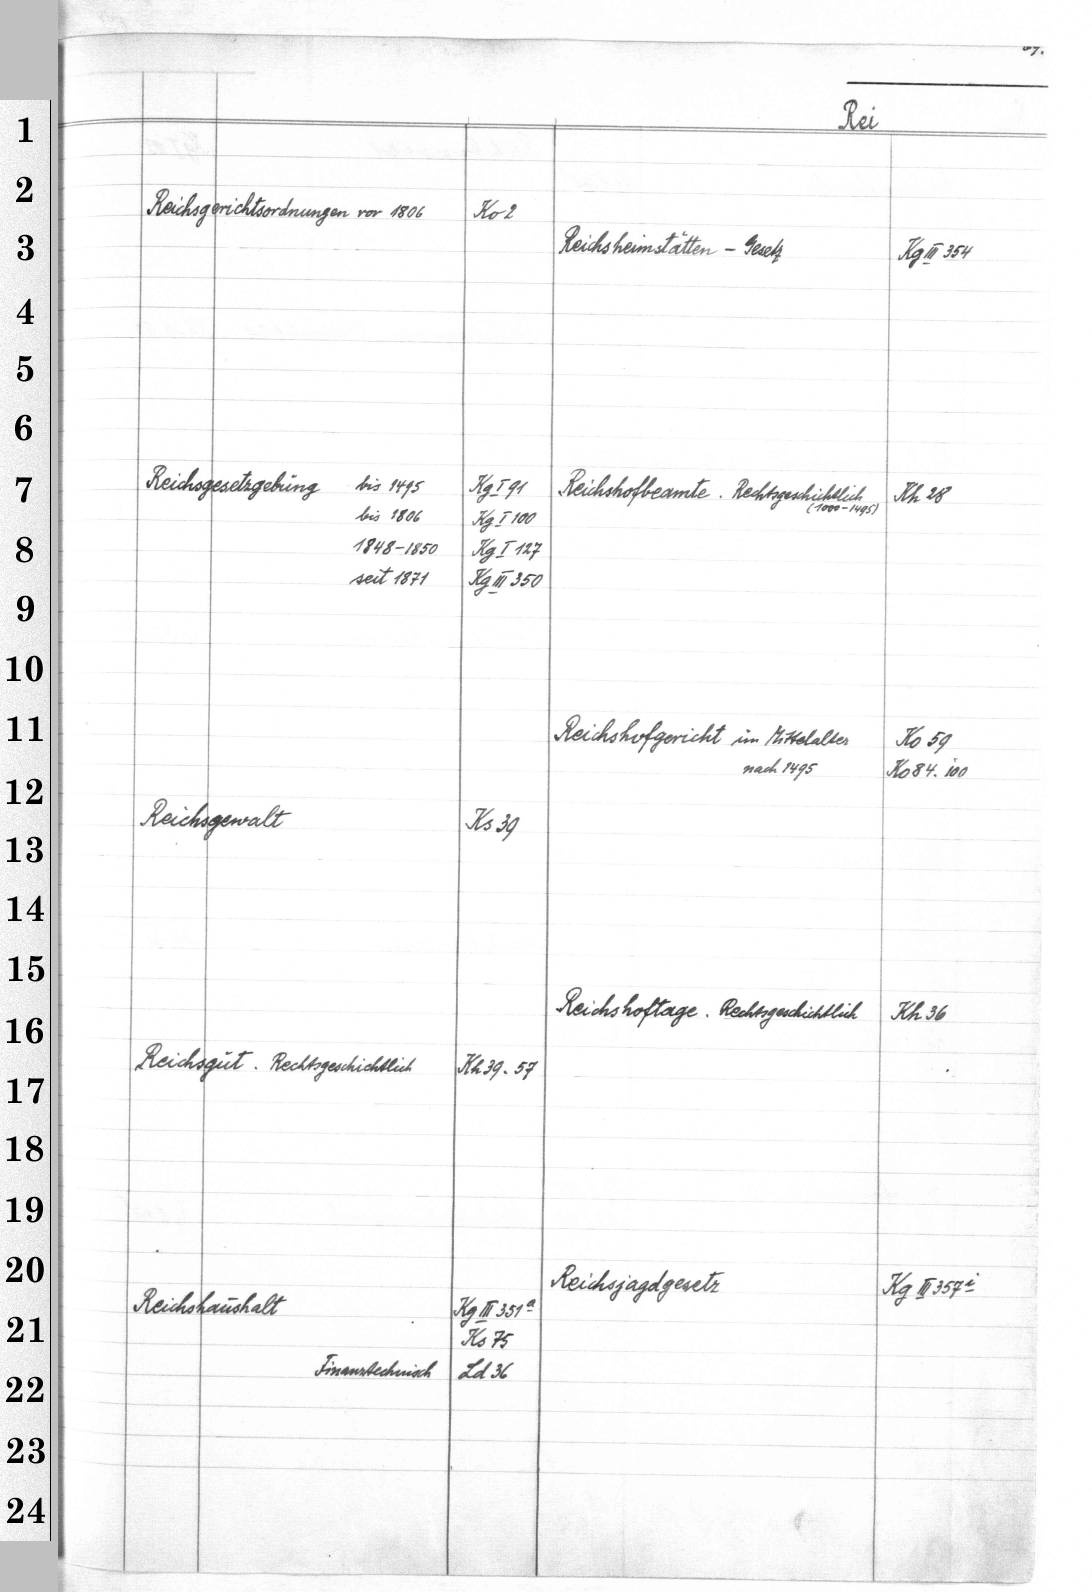 Rei
1
2
3
4
5
6
7
8
9
10
11
12
13
14
15
16
17
18
19
20
21
22
23
24
Reichsgerichtsordnungen vor 1806 Ko 2
Reichsgesetzgebung bis 1495 Kg I 91
bis 1806 Kg I 100
1848-1850 Kg I 127
seit 1871 Kg III 350
Reichsgewalt Ks 39
Reichsgut. Rechtsgeschichtlich Kh 39. 57
Reichshaushalt Kg III 351a
Ks 75
Finanztechnisch Ld 36
Reichsheimstätten - Gesetz Kg III 354
Reichshofbeamte. Rechtsgeschichtlich Kh 28
(1000-1495)
Reichshofgericht im Mittelalter Ko 59
nach 1495 Ko 84. 100
Reichshoftage. Rechtsgeschichtlich Kh 36
Reichsjagdgesetz Kg III 357i